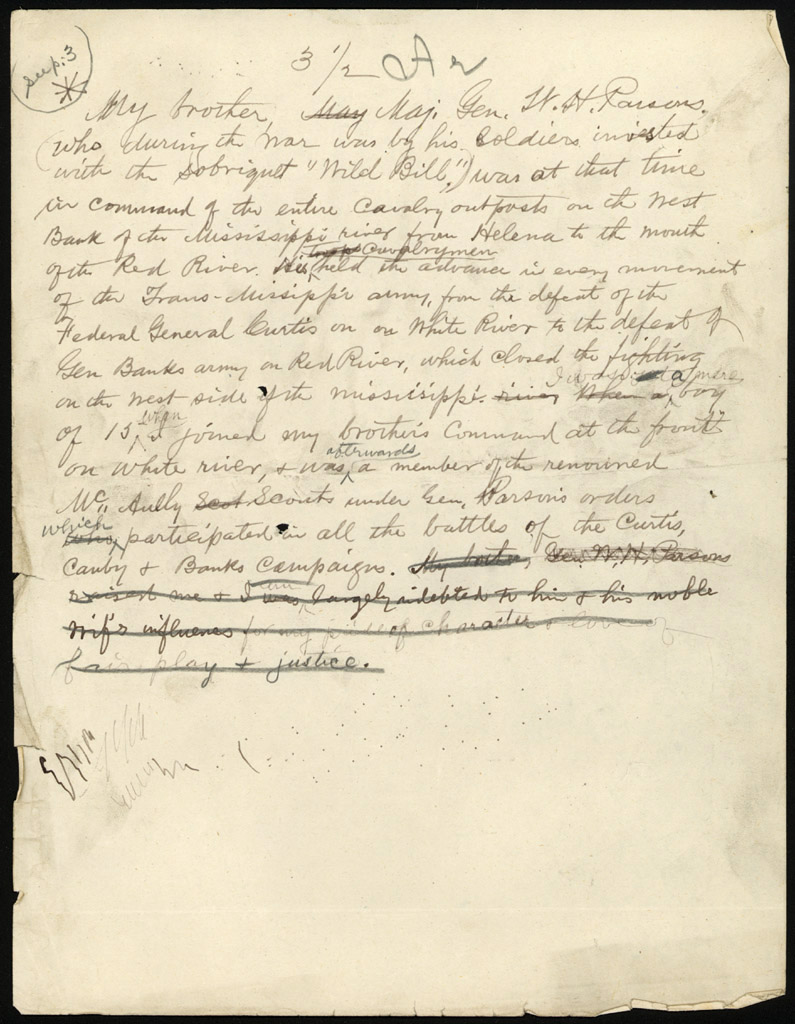 see p. 3
*
3 1/2
My brother, May Maj. Gen. W. H. Parsons.
(who during the War was by his soldiers invested
with the sobriquet "Wild Bill,") was at that time
in command of the entire Cavalry outposts on the West
Bank of the Mississippi river from Helena to the mouth
troops Cavalrymen
of the Red River. His held the advance in every movement
of the Trans-Missippi army, from the defeat of the
Federal General Curtis on on White River to the defeat of
Gen Banks army on Red River, which closed the fighting
I was a mere
on the west side of the mississippi. river When a, boy
when
of 15, I joined my brother's Command at the front
afterwards
on White river, & was, a member of the renowned
Mc,, Aully Scot Scouts under Gen. Parson's orders
which
who, participated in all the battles of the Curtis,
Canby & Banks Campaigns. My brother, Gen. W. H. Parsons
am
raised me & I was, largely indebted to him & his noble
wife's influences for my pride of character & love of
fair play & justice.